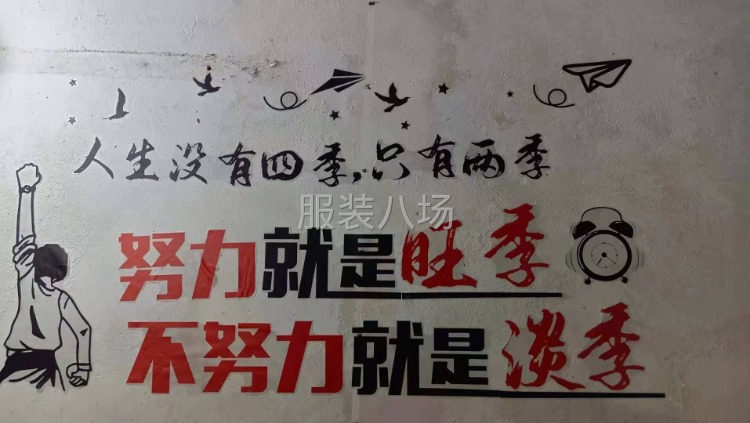 人生没有四季,只有两季
服装八场
努力就是旺季
不努力就是淡季